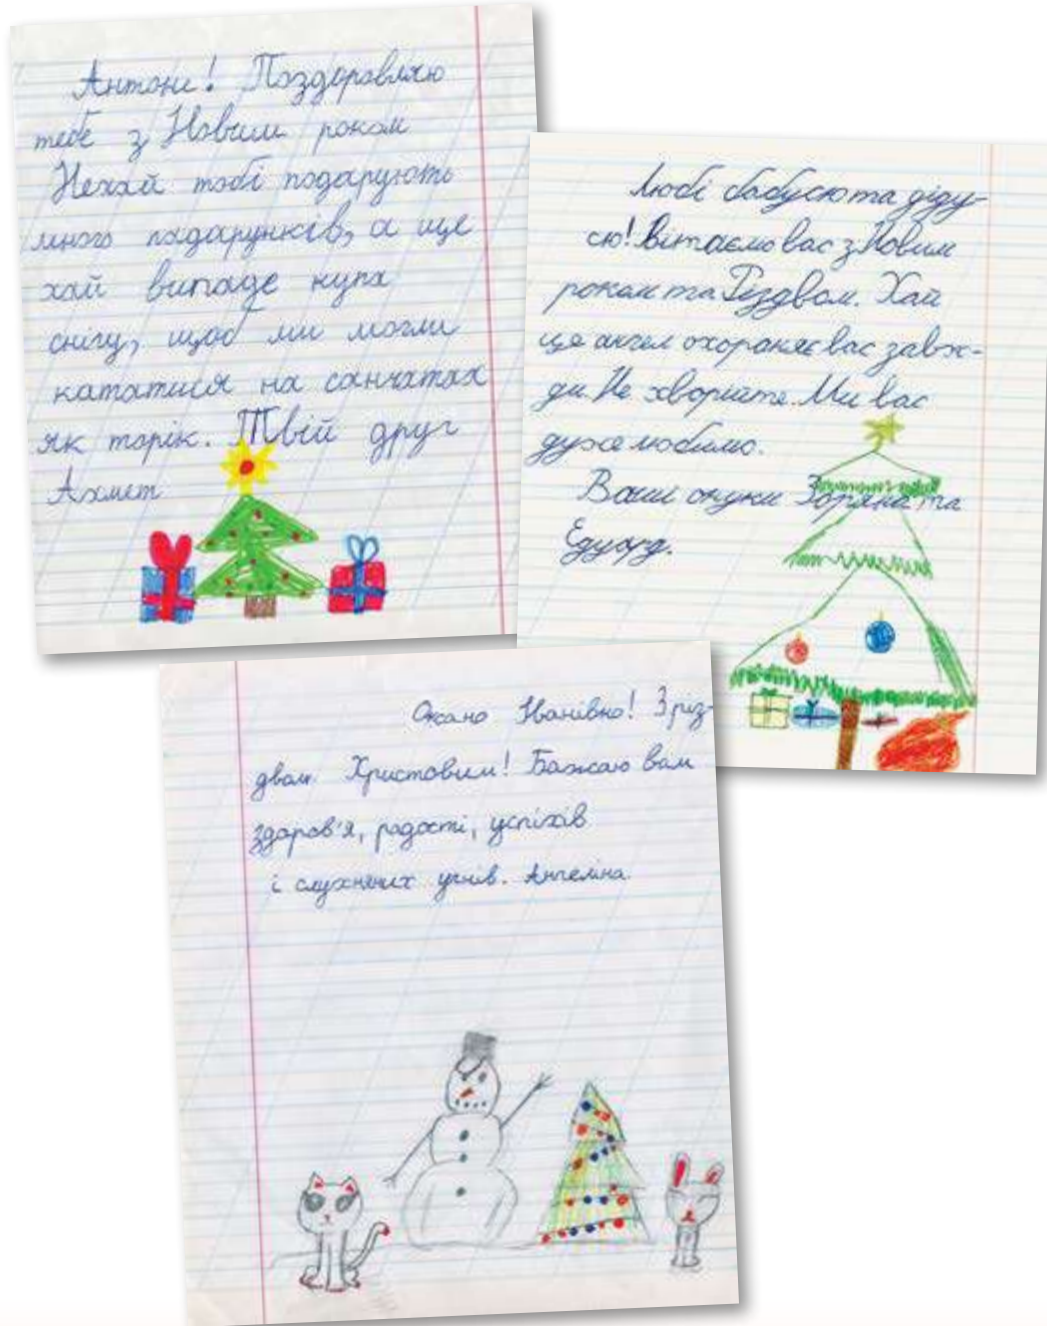 Антоне! Поздоровляю
тебе з Новим роком
Нехай тобі подарують
много падарунків, а ще
хай випаде купа
снігу, щоб ми могли
кататися на санчатах
як торік. Твій друг
Ахмет
Любі бабусю та діду-
сю! Вітаємо вас з Новим
роком та Різдвом. Хай
це ангел охороняє вас завж-
ди. Не хворійте. Ми вас
дуже любимо.
Ваші онуки Зоряна та
Едуард.
Оксано Іванівно! З різ-
двом Христовим! Бажаю вам
здоров'я, радості, успіхів
і слухняних учнів. Ангеліна.